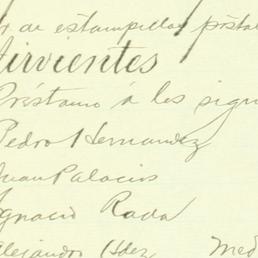 r de estampillas posta
Sirvientes
Préstamo á los sigu
Pedro Hernandez
Juan Palacios
Ignacio Rada
Alejandro Hdez Med